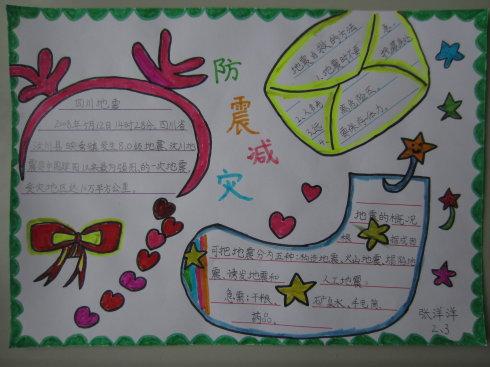 防震减灾
四川地震
2008年5月12日14时28分,四川省
汶川县映秀镇发生8.0级地震,汶川地
震是中国建国以来最为强烈的一次地震,
受灾地区达10万平方公里。
地震自救的方法
1.地震时不要
地震的概况
根
可把地震分为五种:构造地震、火山地震、塌陷地
震、诱发地震和人工地震。
急需:干粮、矿泉水、手电筒
药品。
张洋洋
2、3